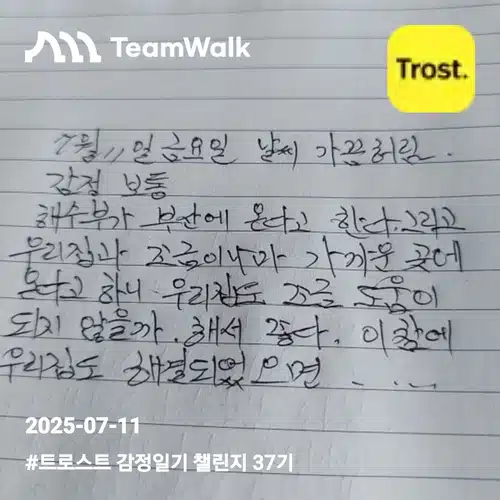 TeamWalk
Trost.
7월 11일 금요일 날씨 가끔흐림.
감정 보통
해수부가 부산에 온다고 한다. 그리고
우리집과 조금이나마 가까운 곳에
온다고 하니 우리집도 조금 도움이
되지 않을까. 해서 좋다. 이참에
우리집도 해결되었으면 . . . .
2025-07-11
#트로스트 감정일기 챌린지 37기